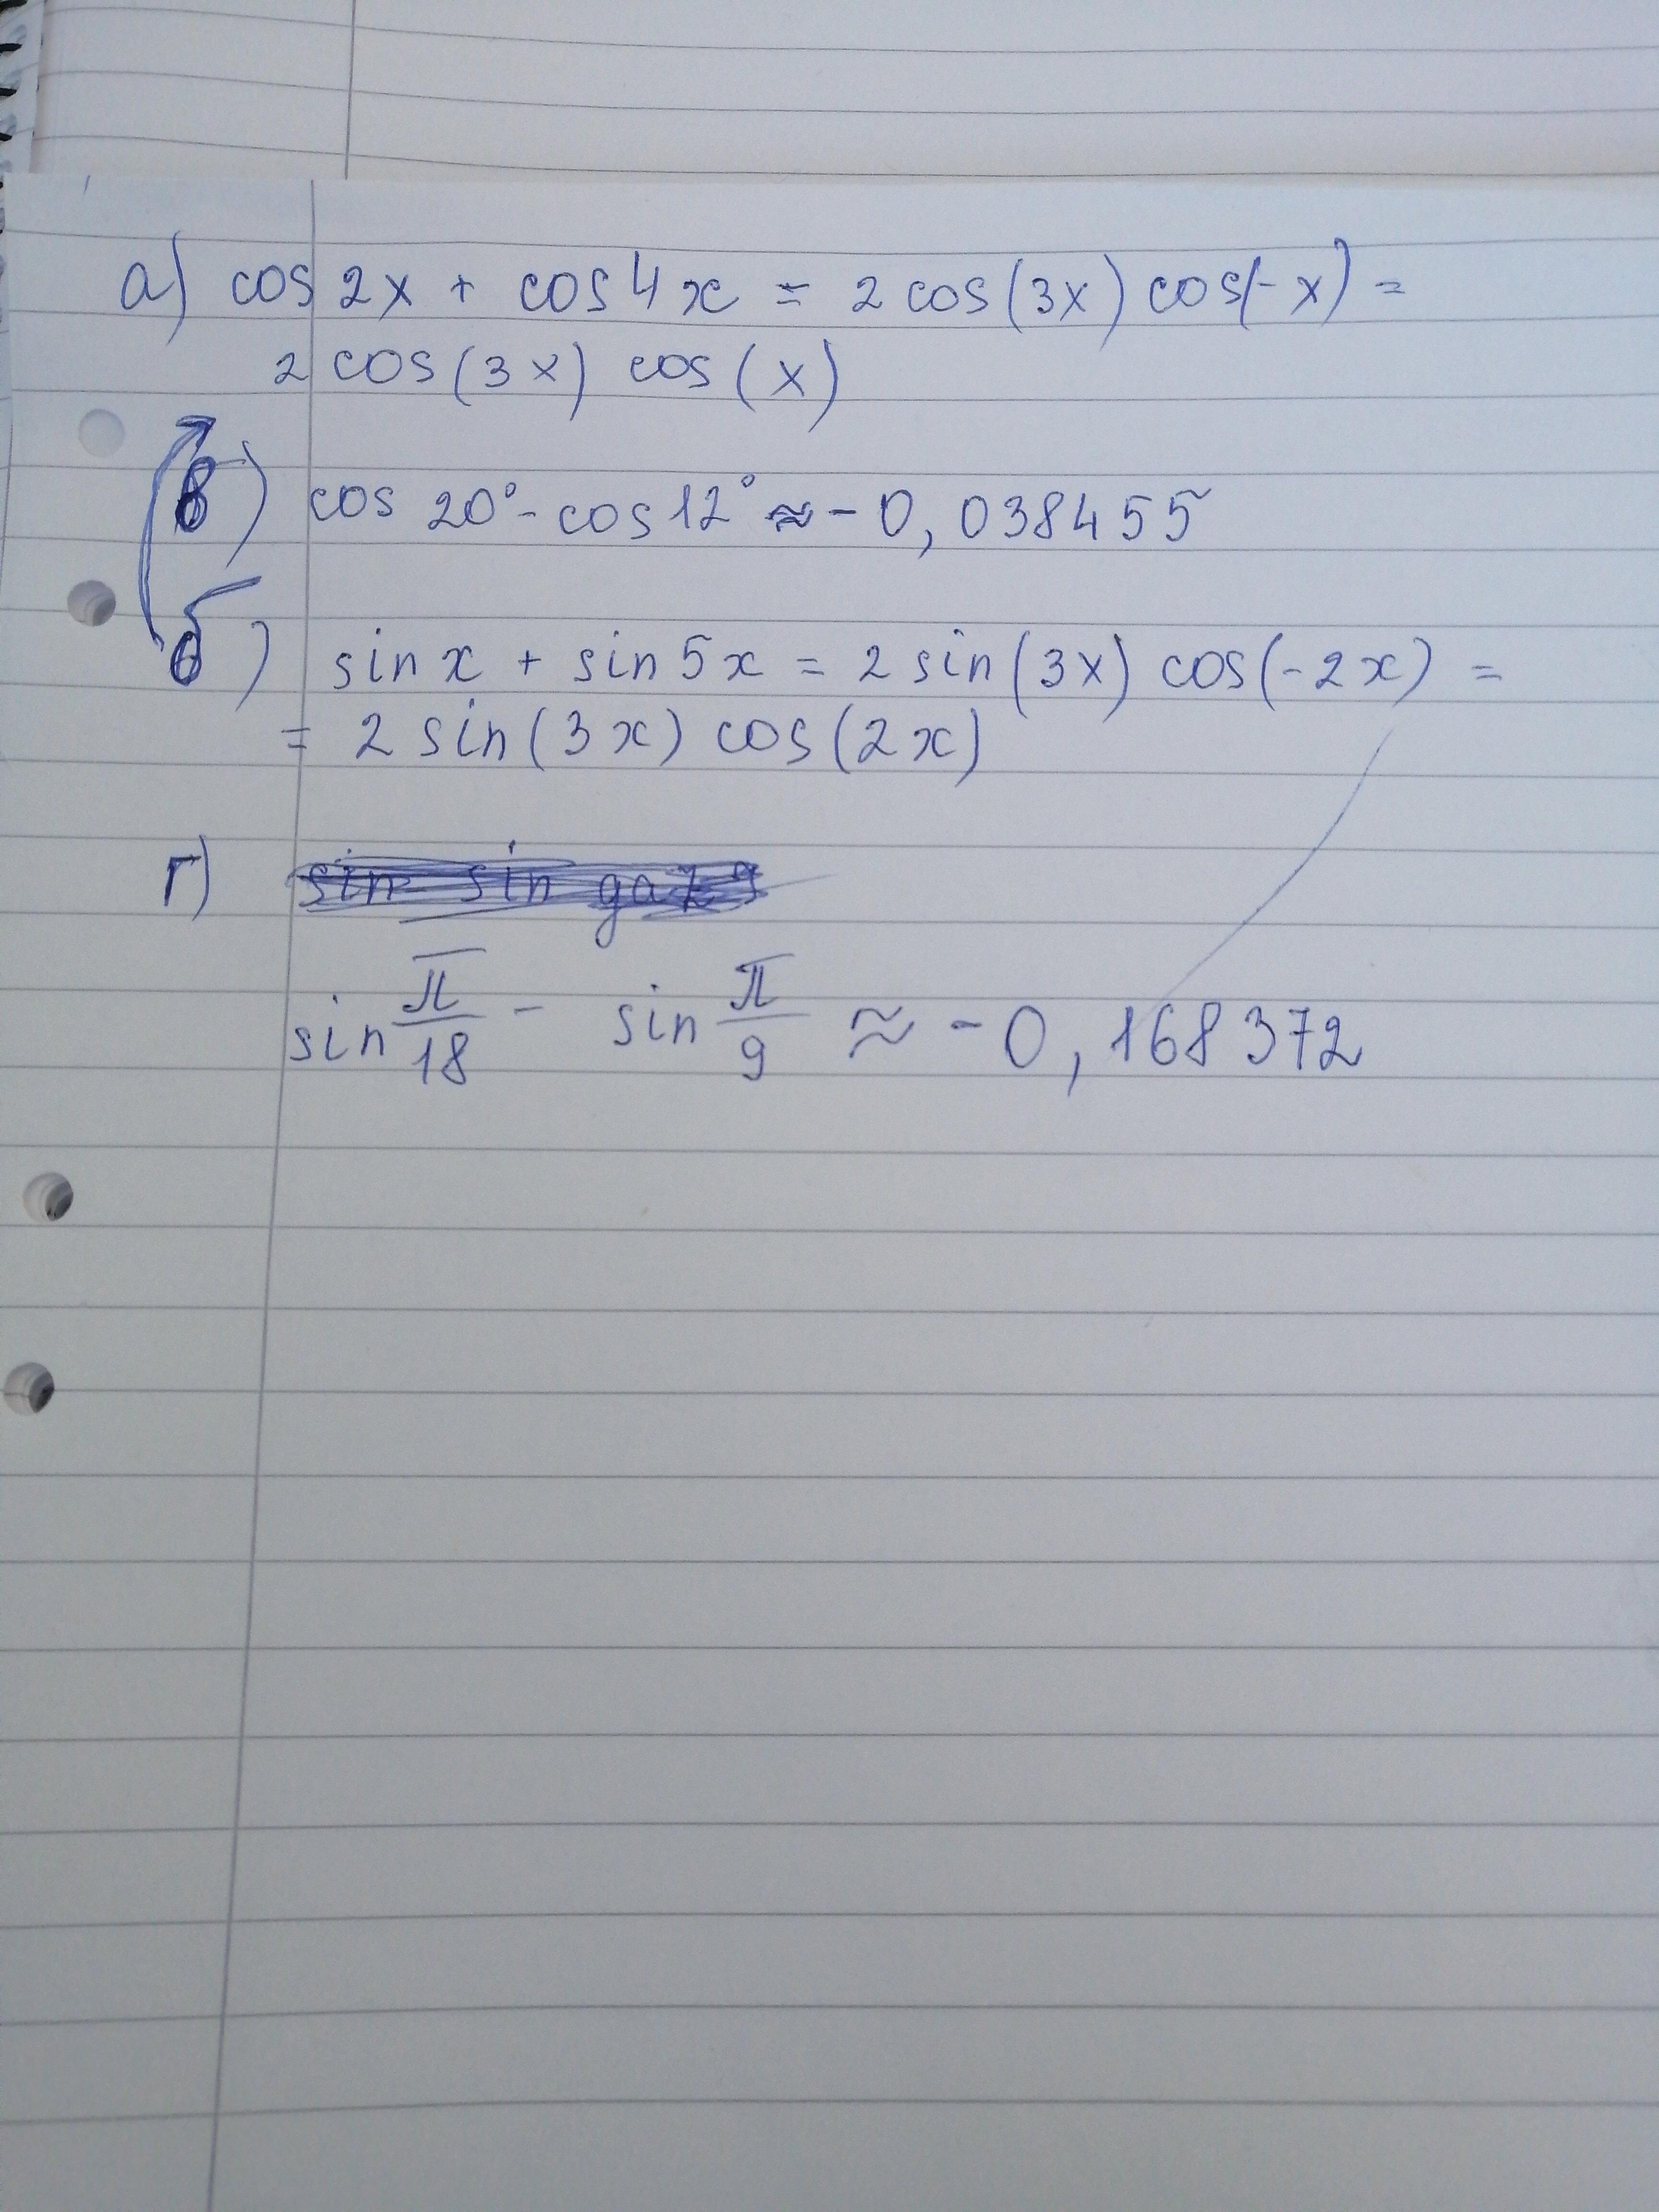 а) cos 2x + cos 4x = 2 cos(3x) cos(-x) =
2 cos(3x) cos(x)
в) cos 20° - cos 12° ≈ -0,038455
б) sin x + sin 5x = 2 sin(3x) cos(-2x) =
= 2 sin(3x) cos(2x)
г)
sin π/18 - sin π/9 ≈ -0,168372